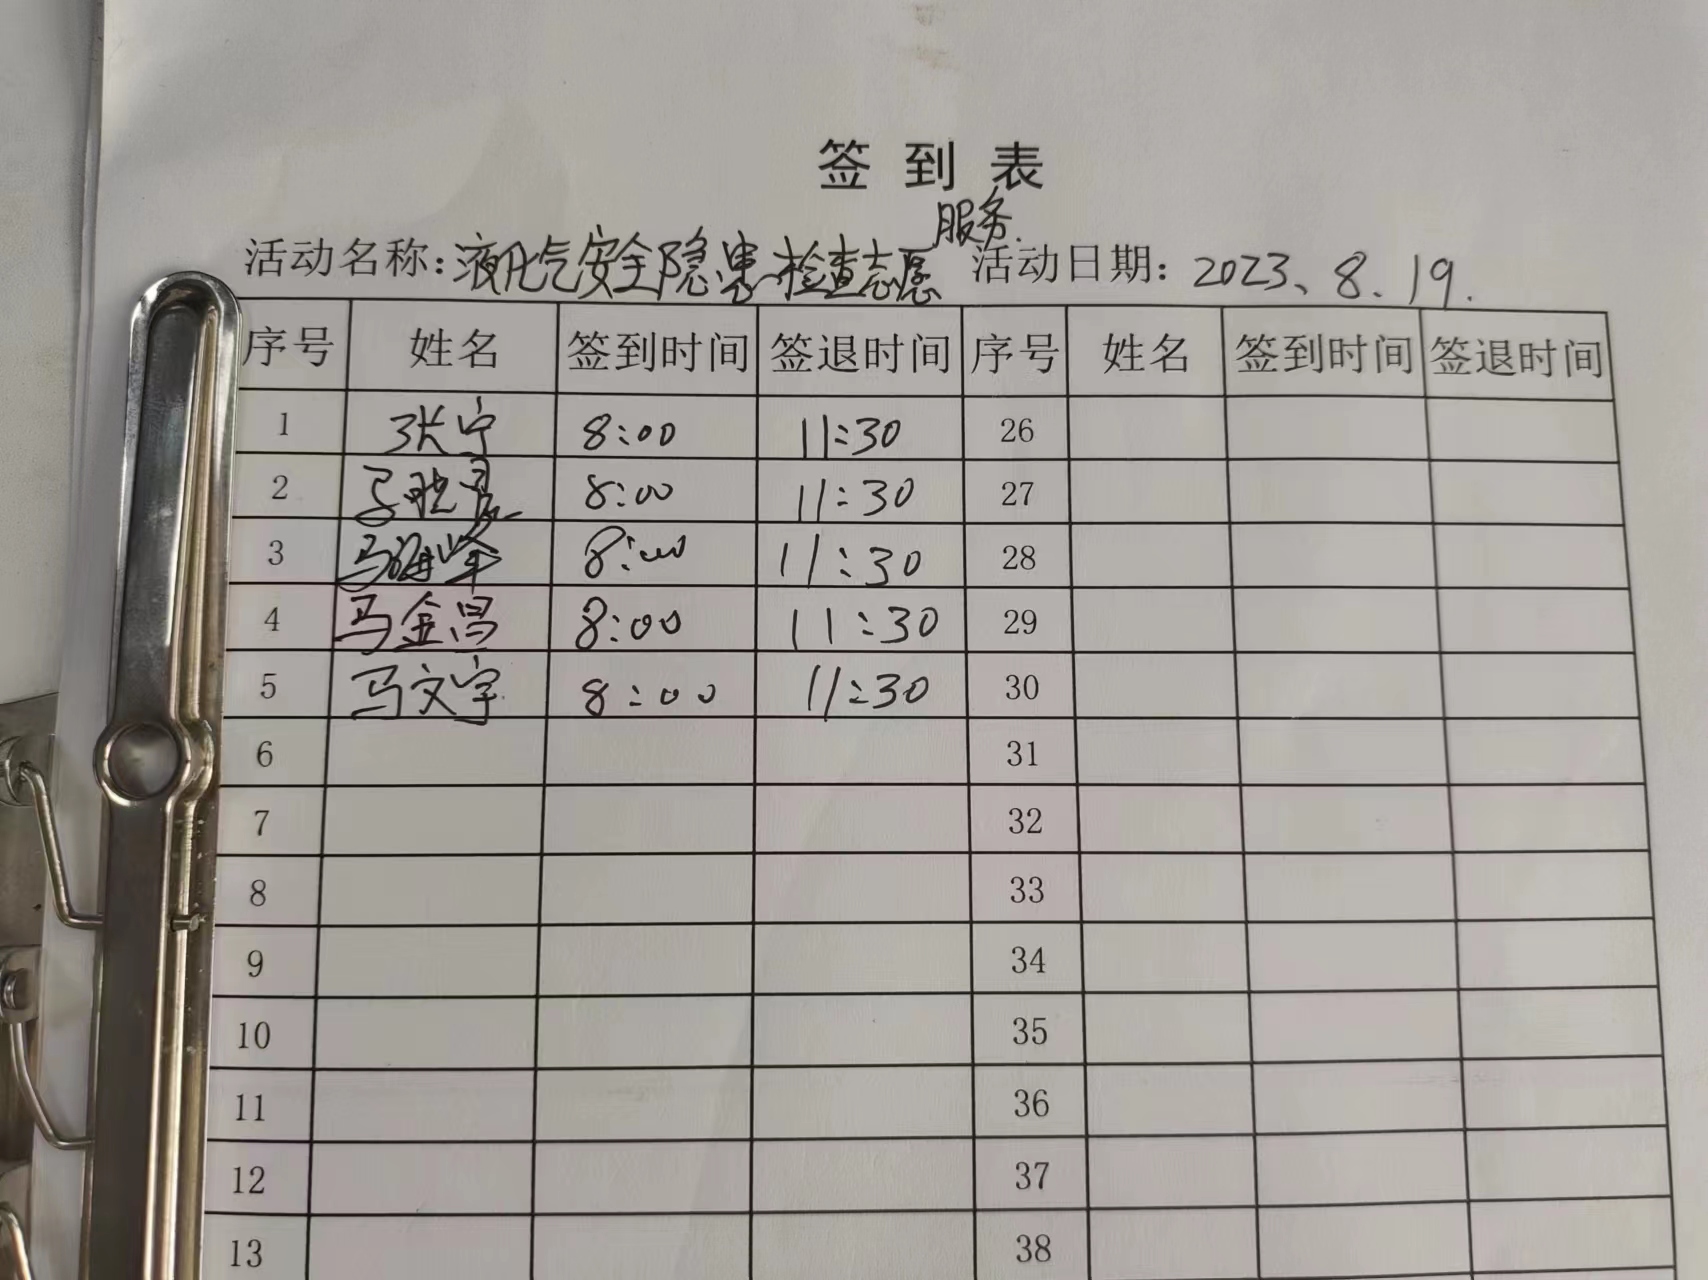 签到表
活动名称:液化气安全隐患检查志愿服务 活动日期:2023、8.19.
序号 姓名 签到时间 签退时间 序号 姓名 签到时间 签退时间
1 张宁 8:00 11:30 26
2 马 8:00 11:30 27
3 马海峰 8:00 11:30 28
4 马金昌 8:00 11:30 29
5 马文宇 8:00 11:30 30
6 31
7 32
8 33
9 34
10 35
11 36
12 37
13 38